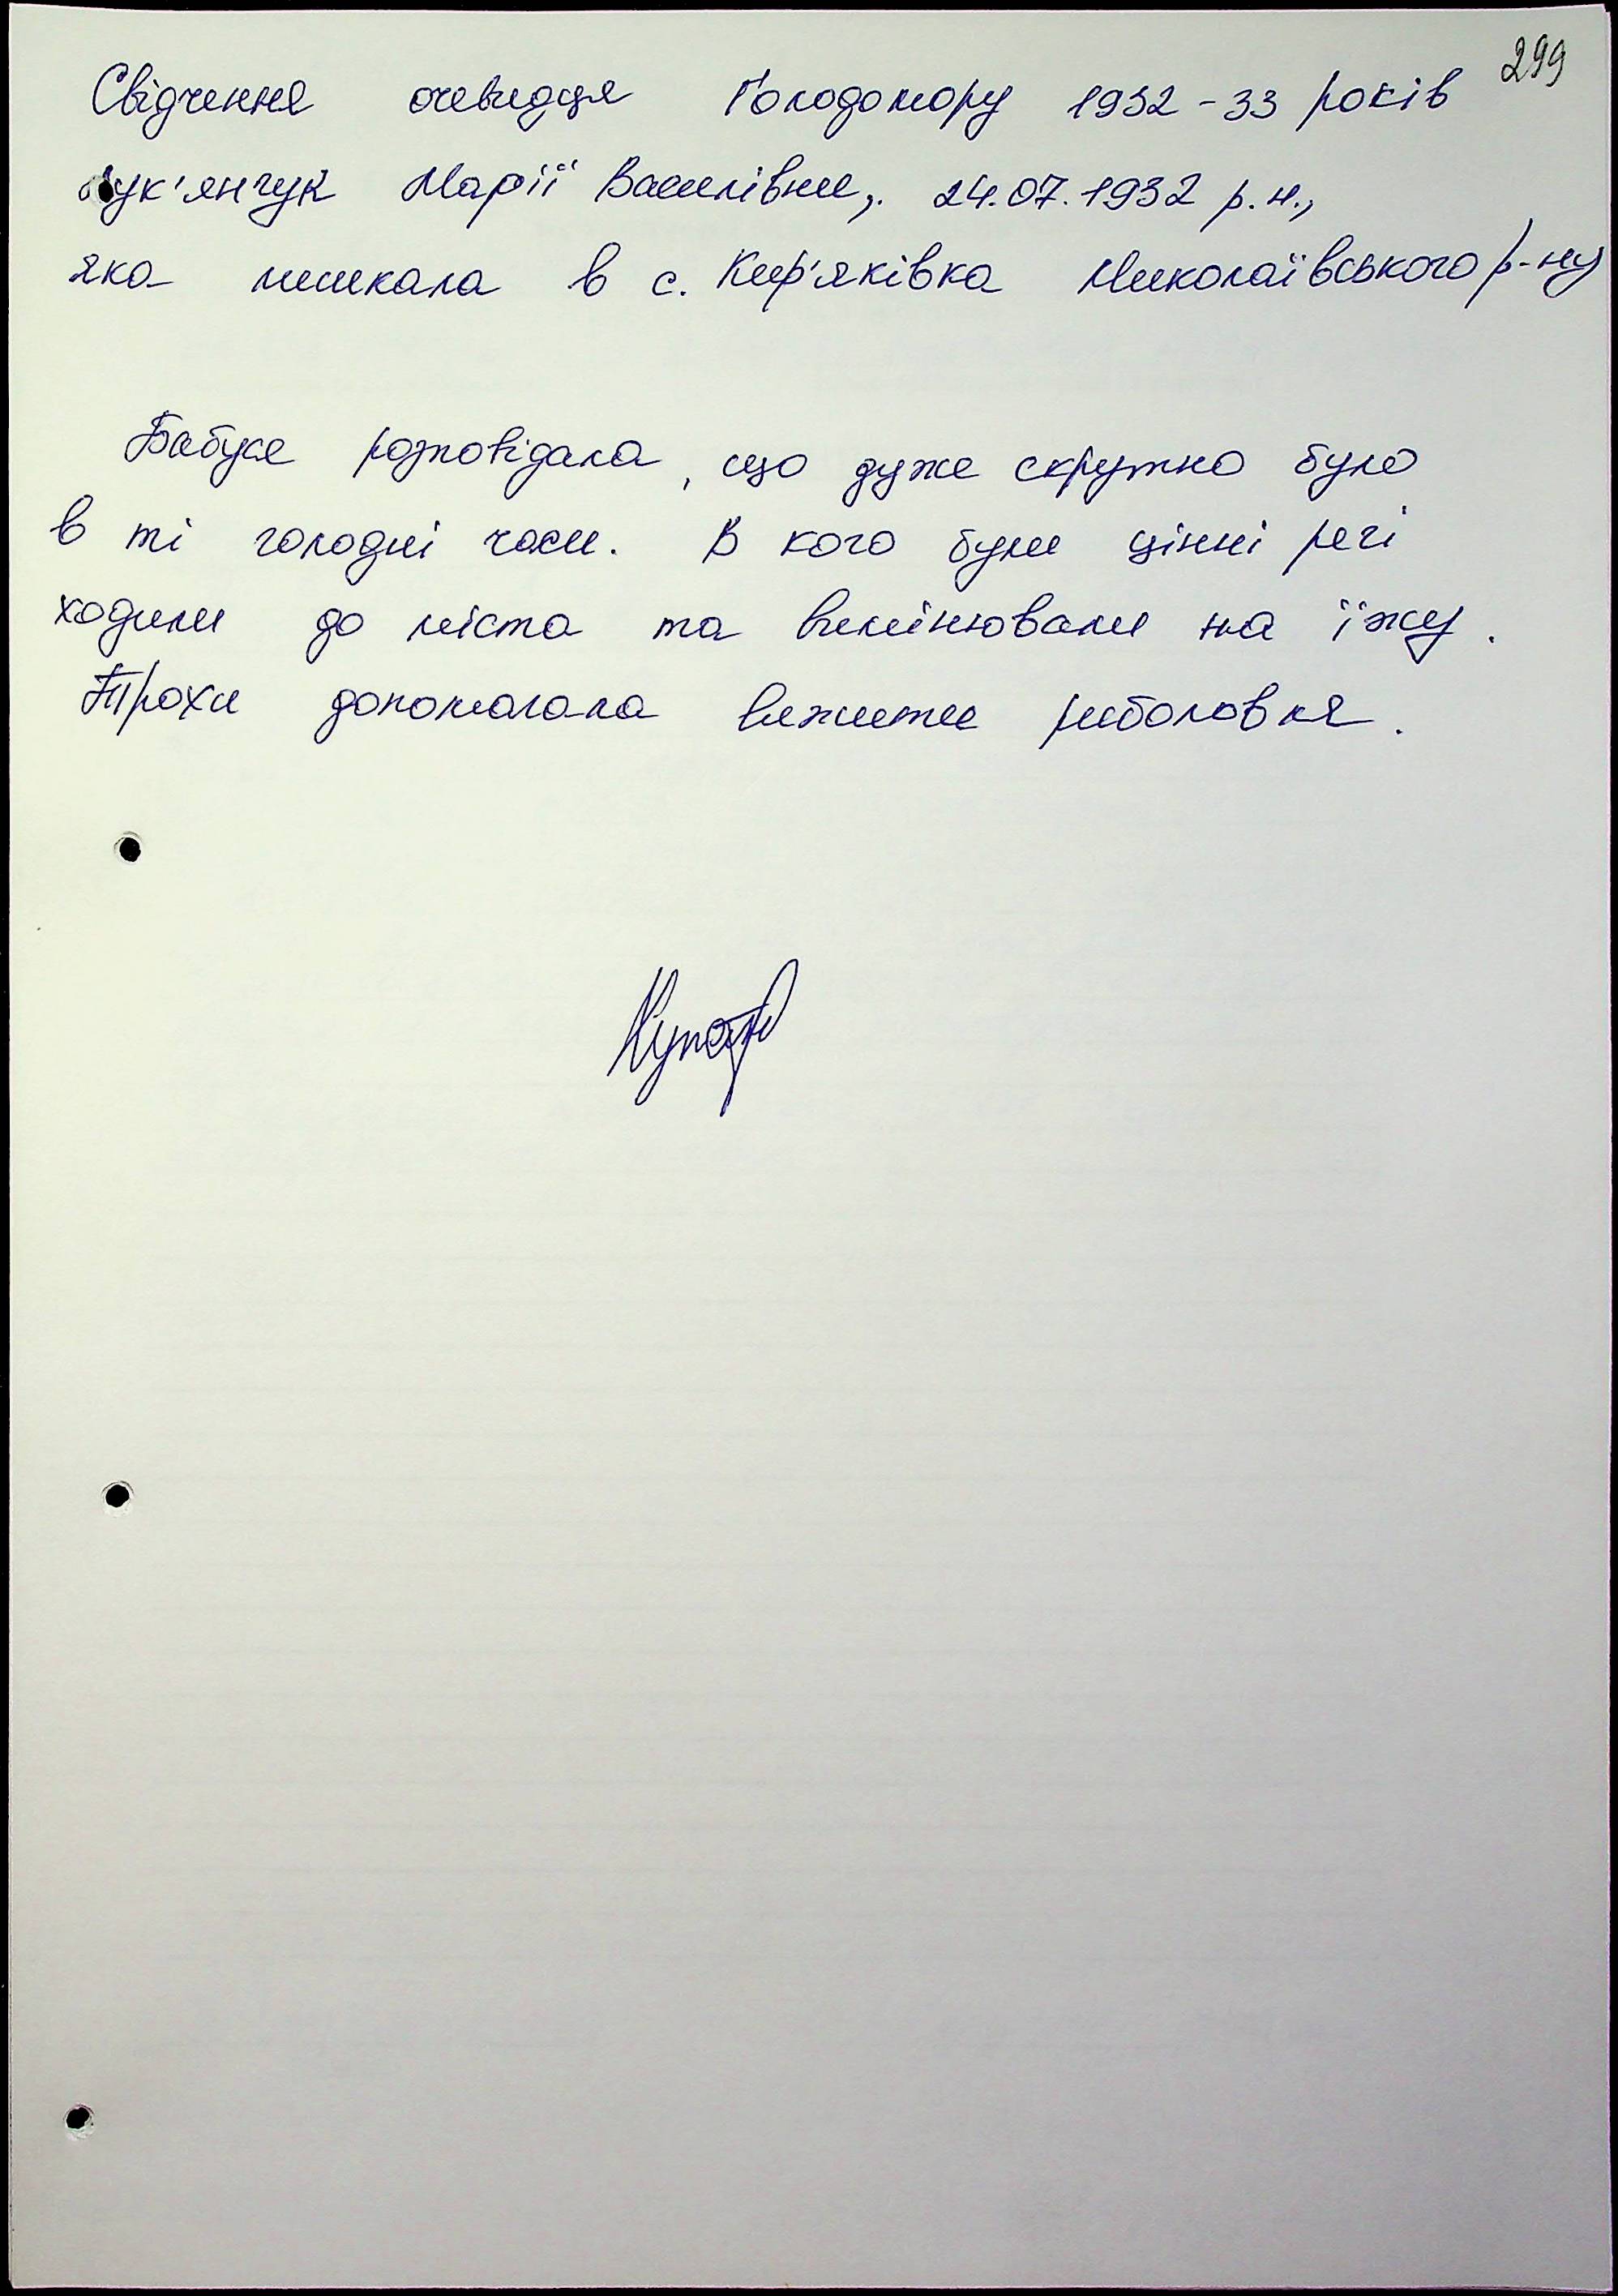 299
Свідчення очевидця Голодомору 1932-33 років
Лук'янчук Марії Василівни, 24.07.1932 р.н.,
яка мешкала в с. Киф'яківка Миколаївського р-ну
Бабуся розповідала, що дуже скрутно було
в ті голодні часи. В кого були цінні речі
ходили до міста та вимінювали на їжу.
Трохи допомагала вижити риболовля.